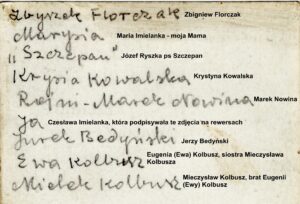 Zbyszek Florczak Zbigniew Florczak
Marysia Maria Imielanka - moja Mama
"Szczepan" Józef Ryszka ps Szczepan
Krysia Kowalska Krystyna Kowalska
Marek Nowina Marek Nowina
Ja Czesława Imielanka, która podpisywała te zdjęcia na rewersach
Jurek Bedyński Jerzy Bedyński
Ewa Kolbusz Eugenia (Ewa) Kolbusz, siostra Mieczysława Kolbusza
Mietek Kolbusz Mieczysław Kolbusz, brat Eugenii (Ewy) Kolbusz